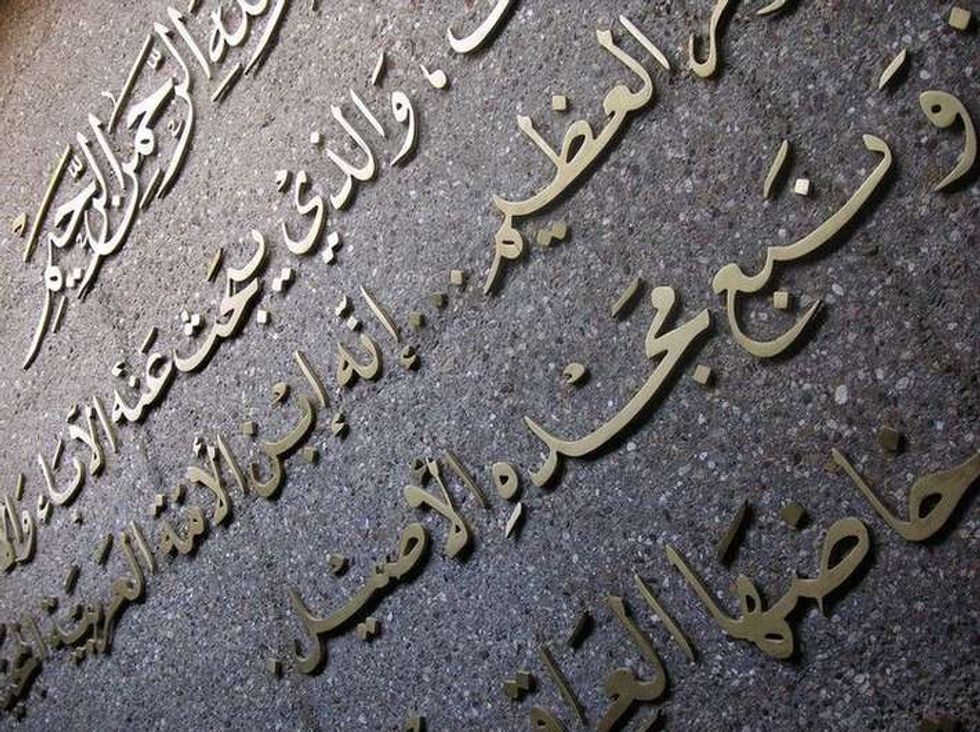 الرَّحمن الرَّحيم
وَالذي يبحَث عَنه الآباء
العظيم ... إنّه ابْن الأمّة العربيّة
وَنبع مجْده الأصيْل.
خاضها